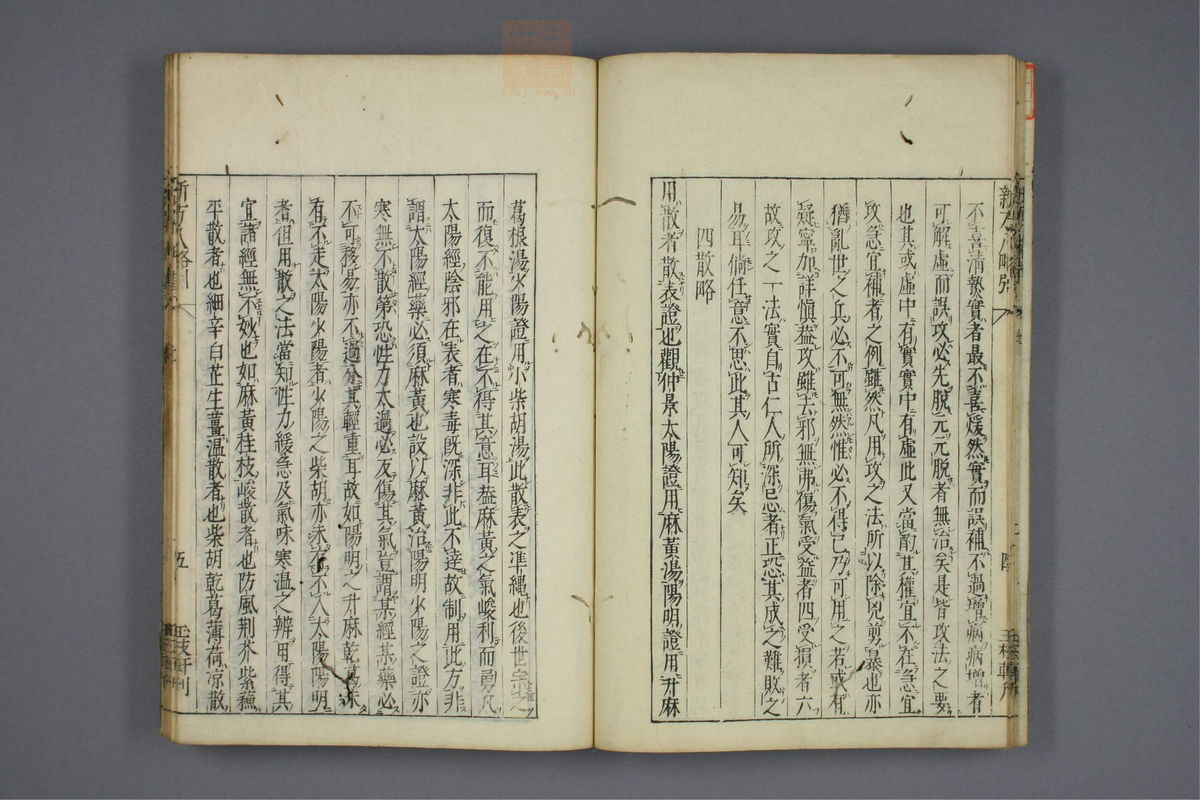 不喜清熱實者最不喜煖然實而誤補不過增病病增者
可解虛而誤攻必先脫元元脫者無治矣是皆攻法之要
也其或虛中有實實中有虛此又當酌其權宜不在急宜
攻急宜補者之例雖然凡用攻之法所以除兇剪暴也亦
猶亂世之兵必不可無然惟必不得已乃可用之若或有
疑寧加詳慎蓋攻雖去邪無弗傷氣受益者四受損者六
故攻之一法實自古仁人所深忌者正恐其成之難敗之
易耳倘任意不思此其人可知矣
四散略
用散者散表證也觀仲景太陽證用麻黃湯陽明證用升麻
葛根湯少陽證用小柴胡湯此散表之準繩也後世宗之
而復不能用之在不得其意耳蓋麻黃之氣峻利而勇凡
太陽經陰邪在表者寒毒既深非此不達故制用此方非
謂太陽經藥必須麻黃也設以麻黃治陽明少陽之證亦
寒無不散第恐性力太過必反傷其氣豈謂某經某藥必
不可移易亦不過分其輕重耳故如陽明之升麻乾葛未
有不走太陽少陽者少陽之柴胡亦未有不入太陽陽明
者但用散之法當知性力緩急及氣味寒溫之辨用得其
宜諸經無不妙也如麻黃桂枝峻散者也防風荆芥紫蘇
平散者也細辛白芷生薑溫散者也柴胡乾葛薄荷凉散